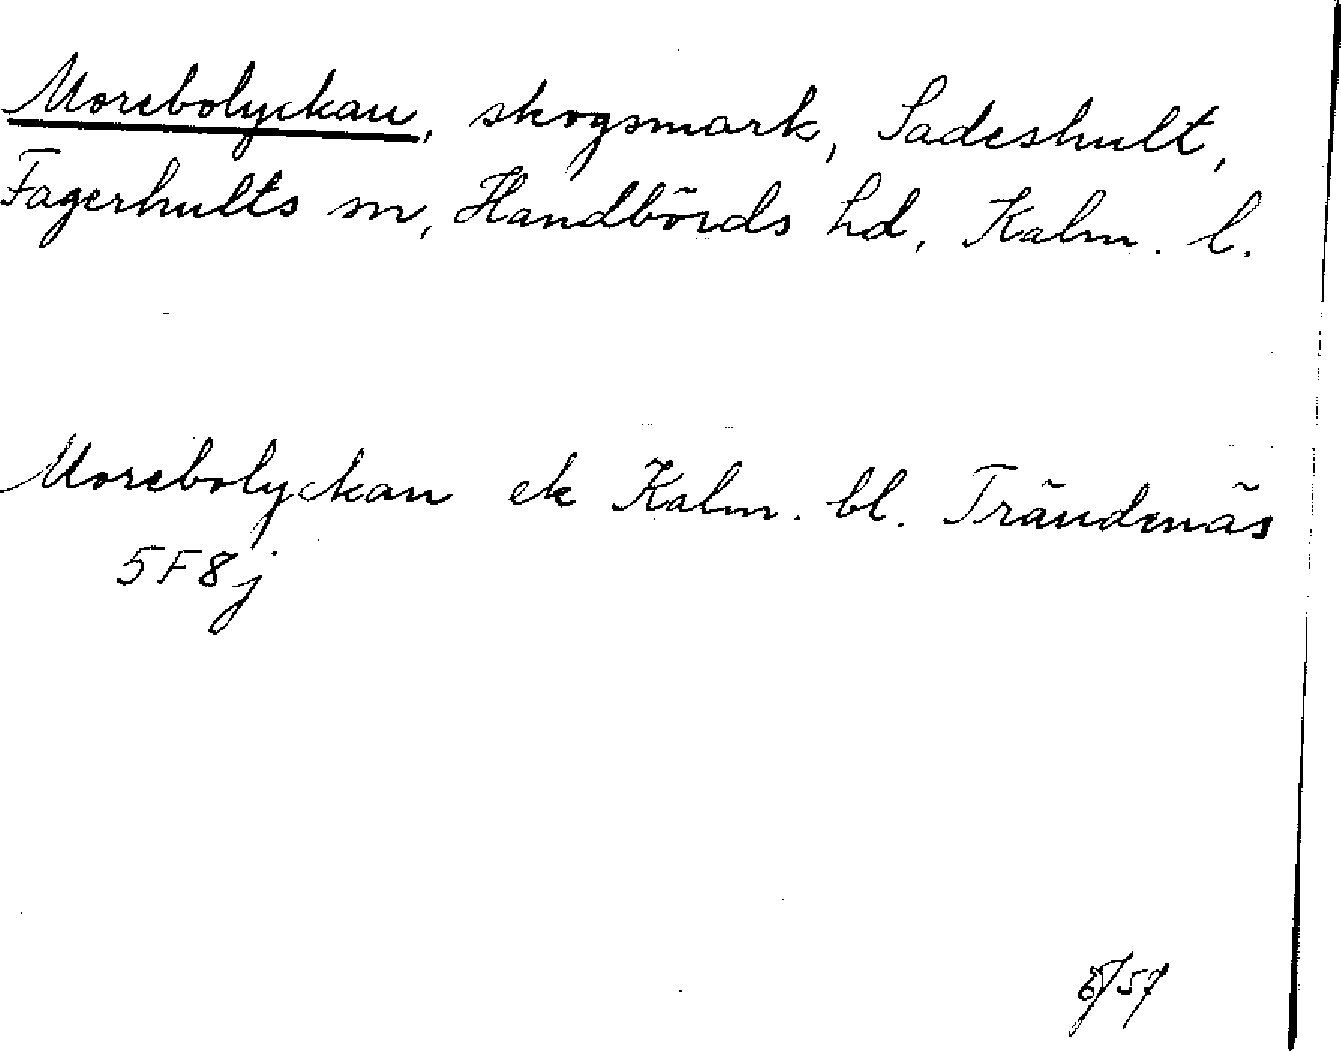 Morebolyckan, skogsmark, Sadeshult,
Fagerhults sn, Handbörds hd, Kalm. l.
Morebolyckan ek Kalm. bl. Trändenäs
5F8j